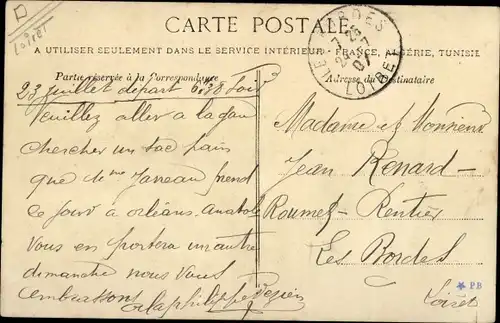 D
Loiret
CARTE POSTALE
A UTILISER SEULEMENT DANS LE SERVICE INTÉRIEUR - FRANCE, ALGÉRIE, TUNISIE
LES BORDES
LOIRET
Partie réservée à la Correspondance
Adresse du Destinataire
23 juillet départ 6h38 soir
Veuillez aller a la gare
chercher un sac pain
que de Mme Javeau prend
ce soir à orléans. Anatole
vous en portera un autre
dimanche nous vous
embrassons
Madame et Monsieur
Jean Renard-
Roumet- Rentier
Les Bordes
Loiret
PB